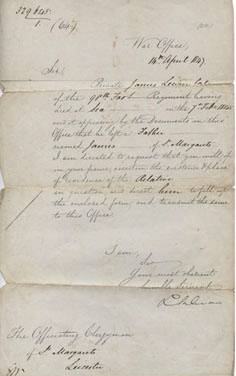 329,648
1. (64)
War Office,
14th April 1847
Sir,
Private James
of the 98th Foot Regiment having
died at Sea on the 7 Feb 1845
and it appearing by the Documents in this
Office that he left a Father
named James of St Margarets
I am directed to request that you will, if
in your power, ascertain the existence & place
of residence of the Relative
in question and direct him to fill up
the enclosed form, and to transmit the same
to this Office.
I am,
Sir
Your most obedient
humble Servant
The Officiating Clergyman
of St Margarets
Leicester